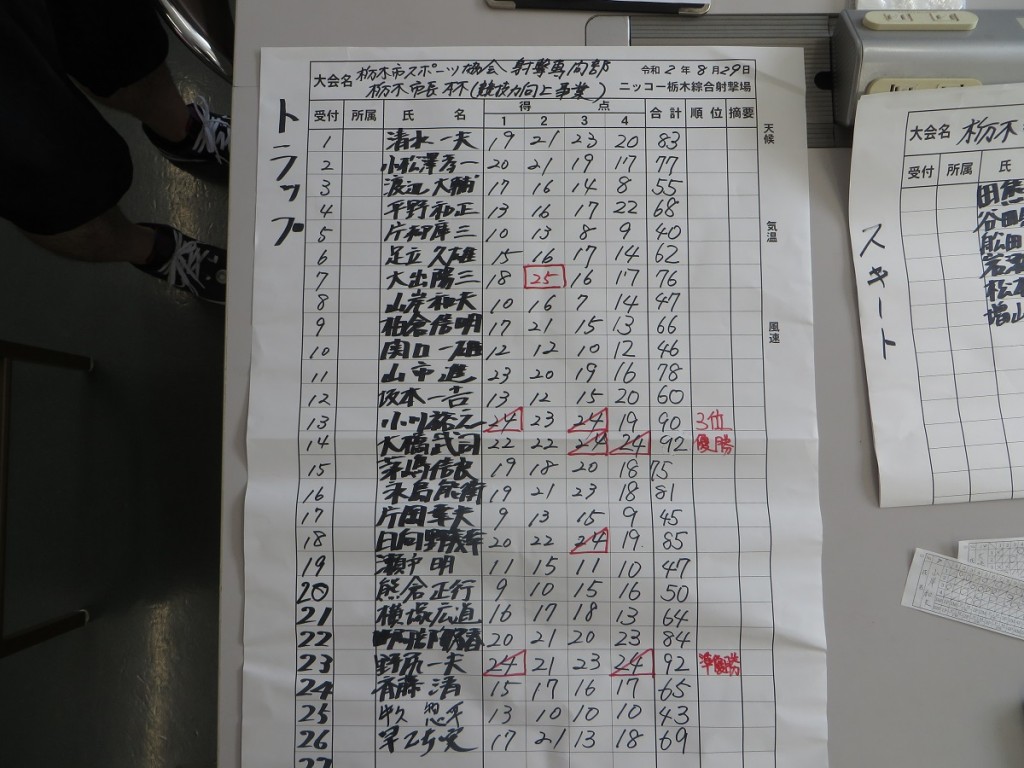 トラップ
大会名 栃木市スポーツ協会、射撃専門部
令和2年8月29日
栃木市長杯(競技力向上事業)
ニッコー栃木綜合射撃場
受付 所属 氏名 得点 合計 順位 摘要
1 2 3 4
天候
気温
風速
1 清水一夫 19 21 23 20 83
2 小松澤芳一 20 21 19 17 77
3 渡辺大輔 17 16 14 8 55
4 平野和正 13 16 17 22 68
5 片柳厚三 10 13 8 9 40
6 足立久雄 15 16 17 14 62
7 大出陽三 18 25 16 17 76
8 山岸和夫 10 16 7 14 47
9 柏倉信明 17 21 15 13 66
10 関口一雄 12 12 10 12 46
11 山市進 23 20 19 16 78
12 坂本一吉 13 12 15 20 60
13 小川裕之 24 23 24 19 90 3位
14 大橋武司 22 22 24 24 92 優勝
15 茅嶋信俊 19 18 20 18 75
16 19 21 23 18 81
17 片岡幸夫 9 13 15 9 45
18 日向野 20 22 24 19 85
19 瀬中明 11 15 11 10 47
20 熊倉正行 9 10 15 16 50
21 横塚広道 16 17 18 13 64
22 20 21 20 23 84
23 野原一夫 24 21 23 24 92 準優勝
24 斉藤清 15 17 16 17 65
25 13 10 10 10 43
26 17 21 13 18 69
27
大会名 栃木
受付 所属 氏
スキート